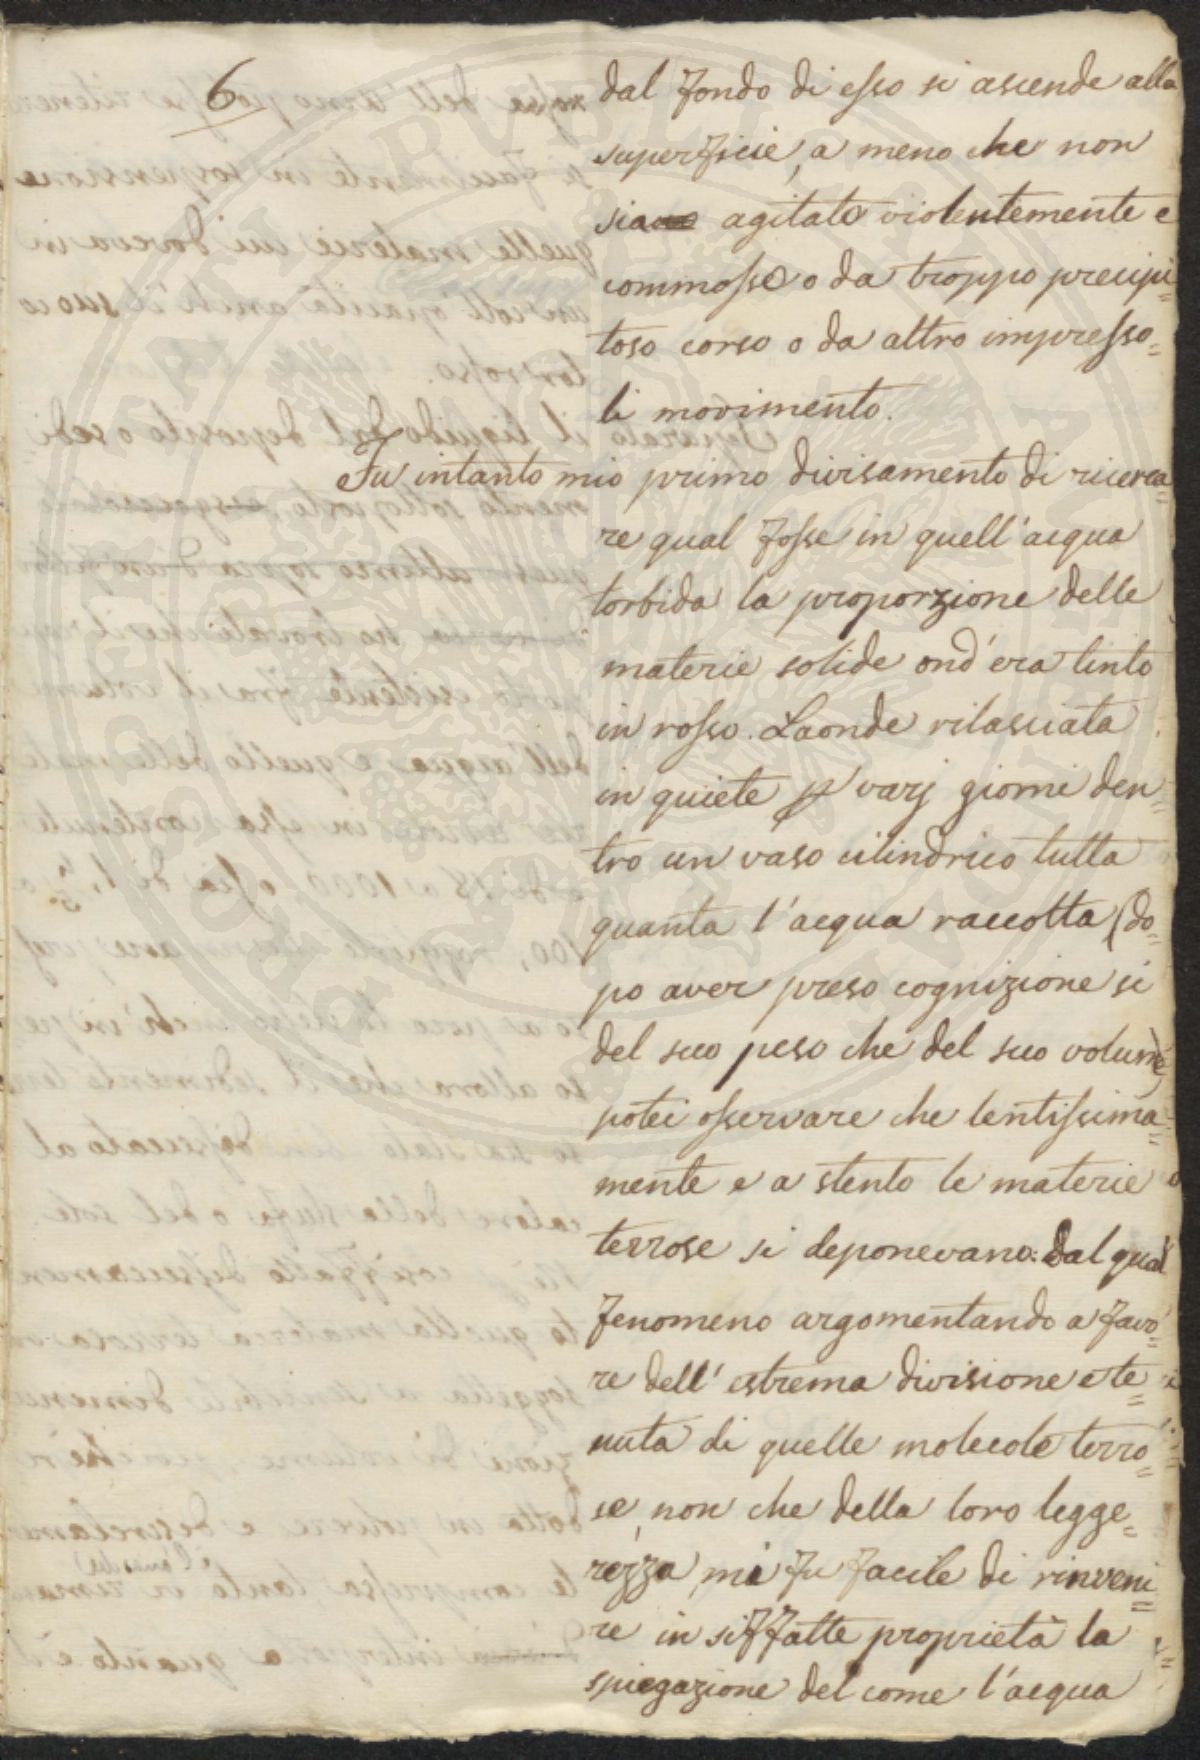 6
dal fondo di esso si asciende alla
superficie, a meno che non
sia agitato violentemente e
commosso o da troppo precipi=
toso corso o da altro impresso=
li movimento.
Fu intanto mio primo divisamento di ricerca=
re qual fosse in quell'acqua
torbida la proporzione delle
materie solide ond'era tinto
in rosso. Laonde rilasciata
in quiete p varj giorni den=
tro un vaso cilindrico tutta
quanta l'acqua raccolta (do=
po aver preso cognizione si
del suo peso che del suo volume)
potei osservare che lentissima=
mente e a stento le materie
terrose si deponevano: dal qual
fenomeno argomentando a favo=
re dell'estrema divisione e te=
nuta di quelle molecole terro=
se, non che della loro legge=
rezza, mi fu facile di rinveni=
re in siffatte proprietà la
spiegazione del come l'acqua